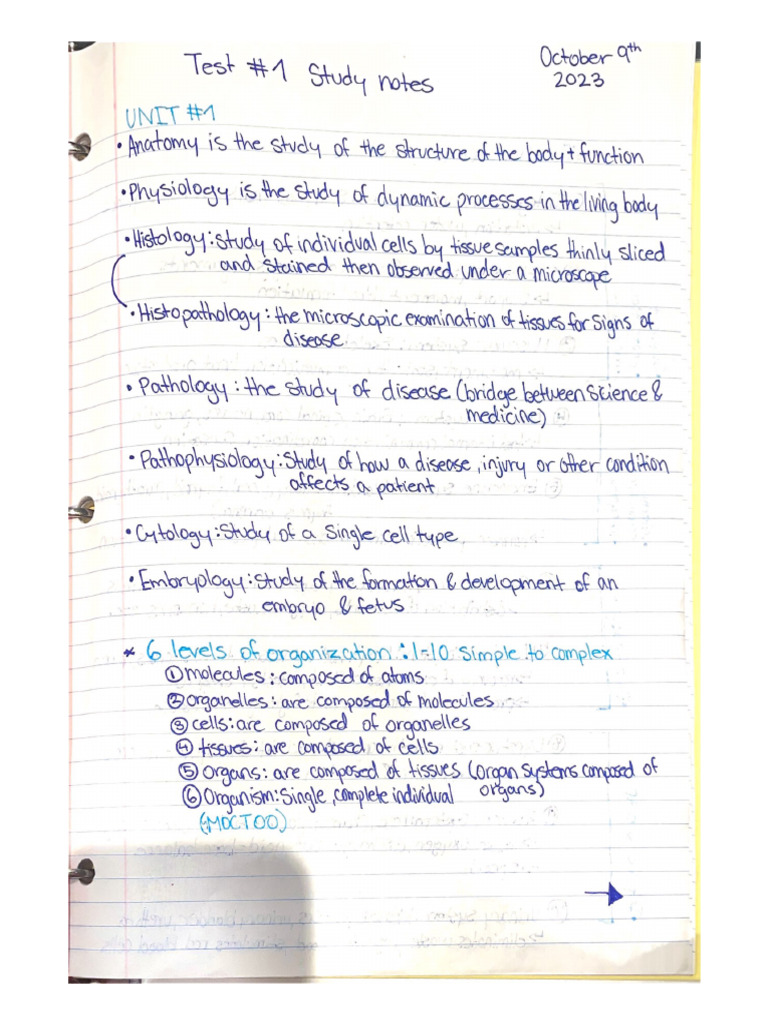 Test #1 Study notes
October 9th
2023
UNIT #1
• Anatomy is the study of the structure of the body + function
• Physiology is the study of dynamic processes in the living body
• Histology: study of individual cells by tissue samples thinly sliced
and stained then observed under a microscope
• Histopathology: the microscopic examination of tissues for signs of
disease
• Pathology: the study of disease (bridge between science &
medicine)
• Pathophysiology: Study of how a disease, injury or other condition
affects a patient
• Cytology: Study of a single cell type
• Embryology: Study of the formation & development of an
embryo & fetus
* 6 levels of organization: 1-10 simple to complex
① molecules: composed of atoms
② organelles: are composed of molecules
③ cells: are composed of organelles
④ tissues: are composed of cells
⑤ Organs: are composed of tissues (organ systems composed of
organs)
⑥ Organism: Single, complete individual
(MOCTOO)